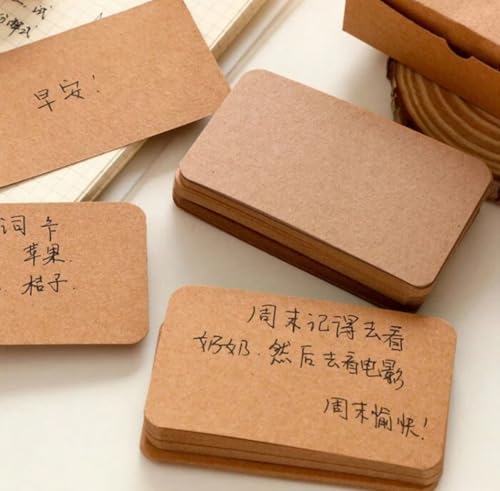 早安！
词卡
苹果.
桔子.
周末记得去看
奶奶.然后去看电影
周末愉快！